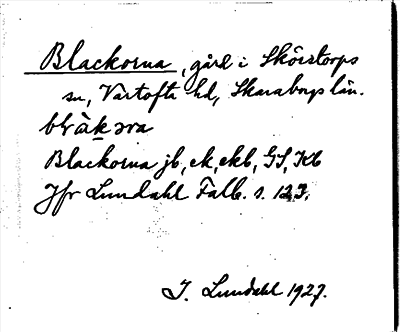 Blackorna, gård i Skörstorps
sn, Vartofta hd, Skaraborgs län.
blàkɔra
Blackorna jb, ek, ekb, GS, Kb
Jfr Lundahl Falb. s. 123.
I. Lundahl 1927.